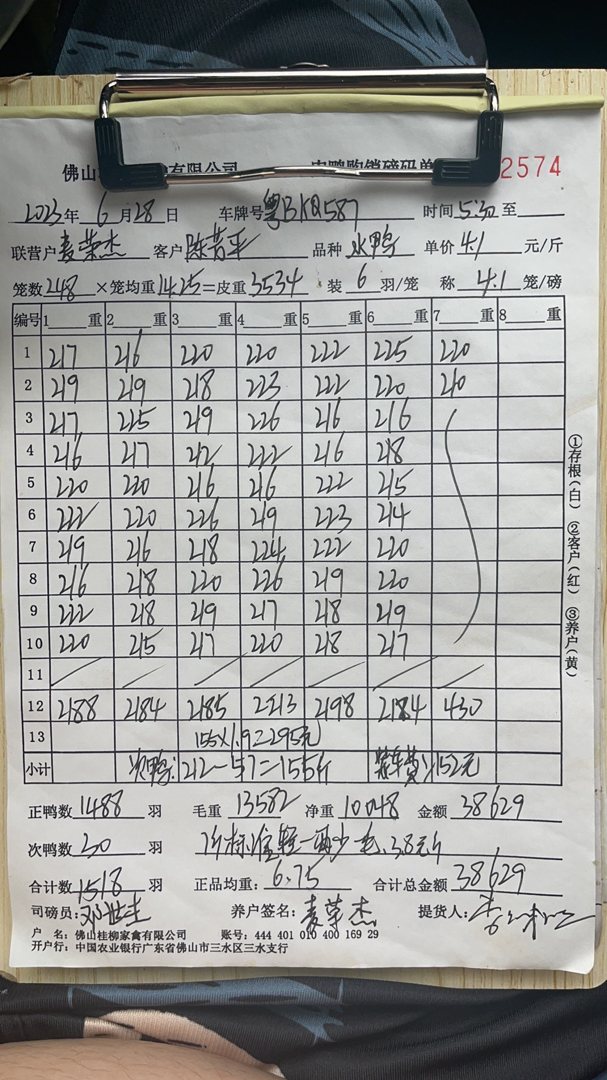 佛山 有限公司 肉鸭购销磅码单 2574
2023年 6月28日 车牌号 粤BKQ587 时间 5:30至
联营户 麦荣杰 客户 陈若平 品种 水鸭 单价 4.1 元/斤
笼数 248 ×笼均重 14.25=皮重 3534 装 6 羽/笼 称 4.1 笼/磅
编号 1 重 2 重 3 重 4 重 5 重 6 重 7 重 8 重
1 217 216 220 220 222 225 220
2 219 219 218 223 222 220 210
3 217 225 219 226 216 216
4 216 217 212 222 216 218
5 220 220 216 216 222 215
6 222 220 226 219 223 214
7 219 216 218 224 222 220
8 216 218 220 226 219 220
9 222 218 219 217 218 219
10 220 215 217 220 218 217
11
12 2188 2184 2185 2213 2198 2184 430
13 155×1.9=295元
小计 次鸭:212-57=155斤 装车费:152元
正鸭数 1488 羽 毛重 13582 净重 10048 金额 38629
次鸭数 30 羽
合计数 1518 羽 正品均重: 6.75 合计总金额 38629
司磅员: 养户签名: 麦荣杰 提货人:
户 名: 佛山桂柳家禽有限公司 账号: 444 401 010 400 169 29
开户行: 中国农业银行广东省佛山市三水区三水支行
①存根(白) ②客户(红) ③养户(黄)